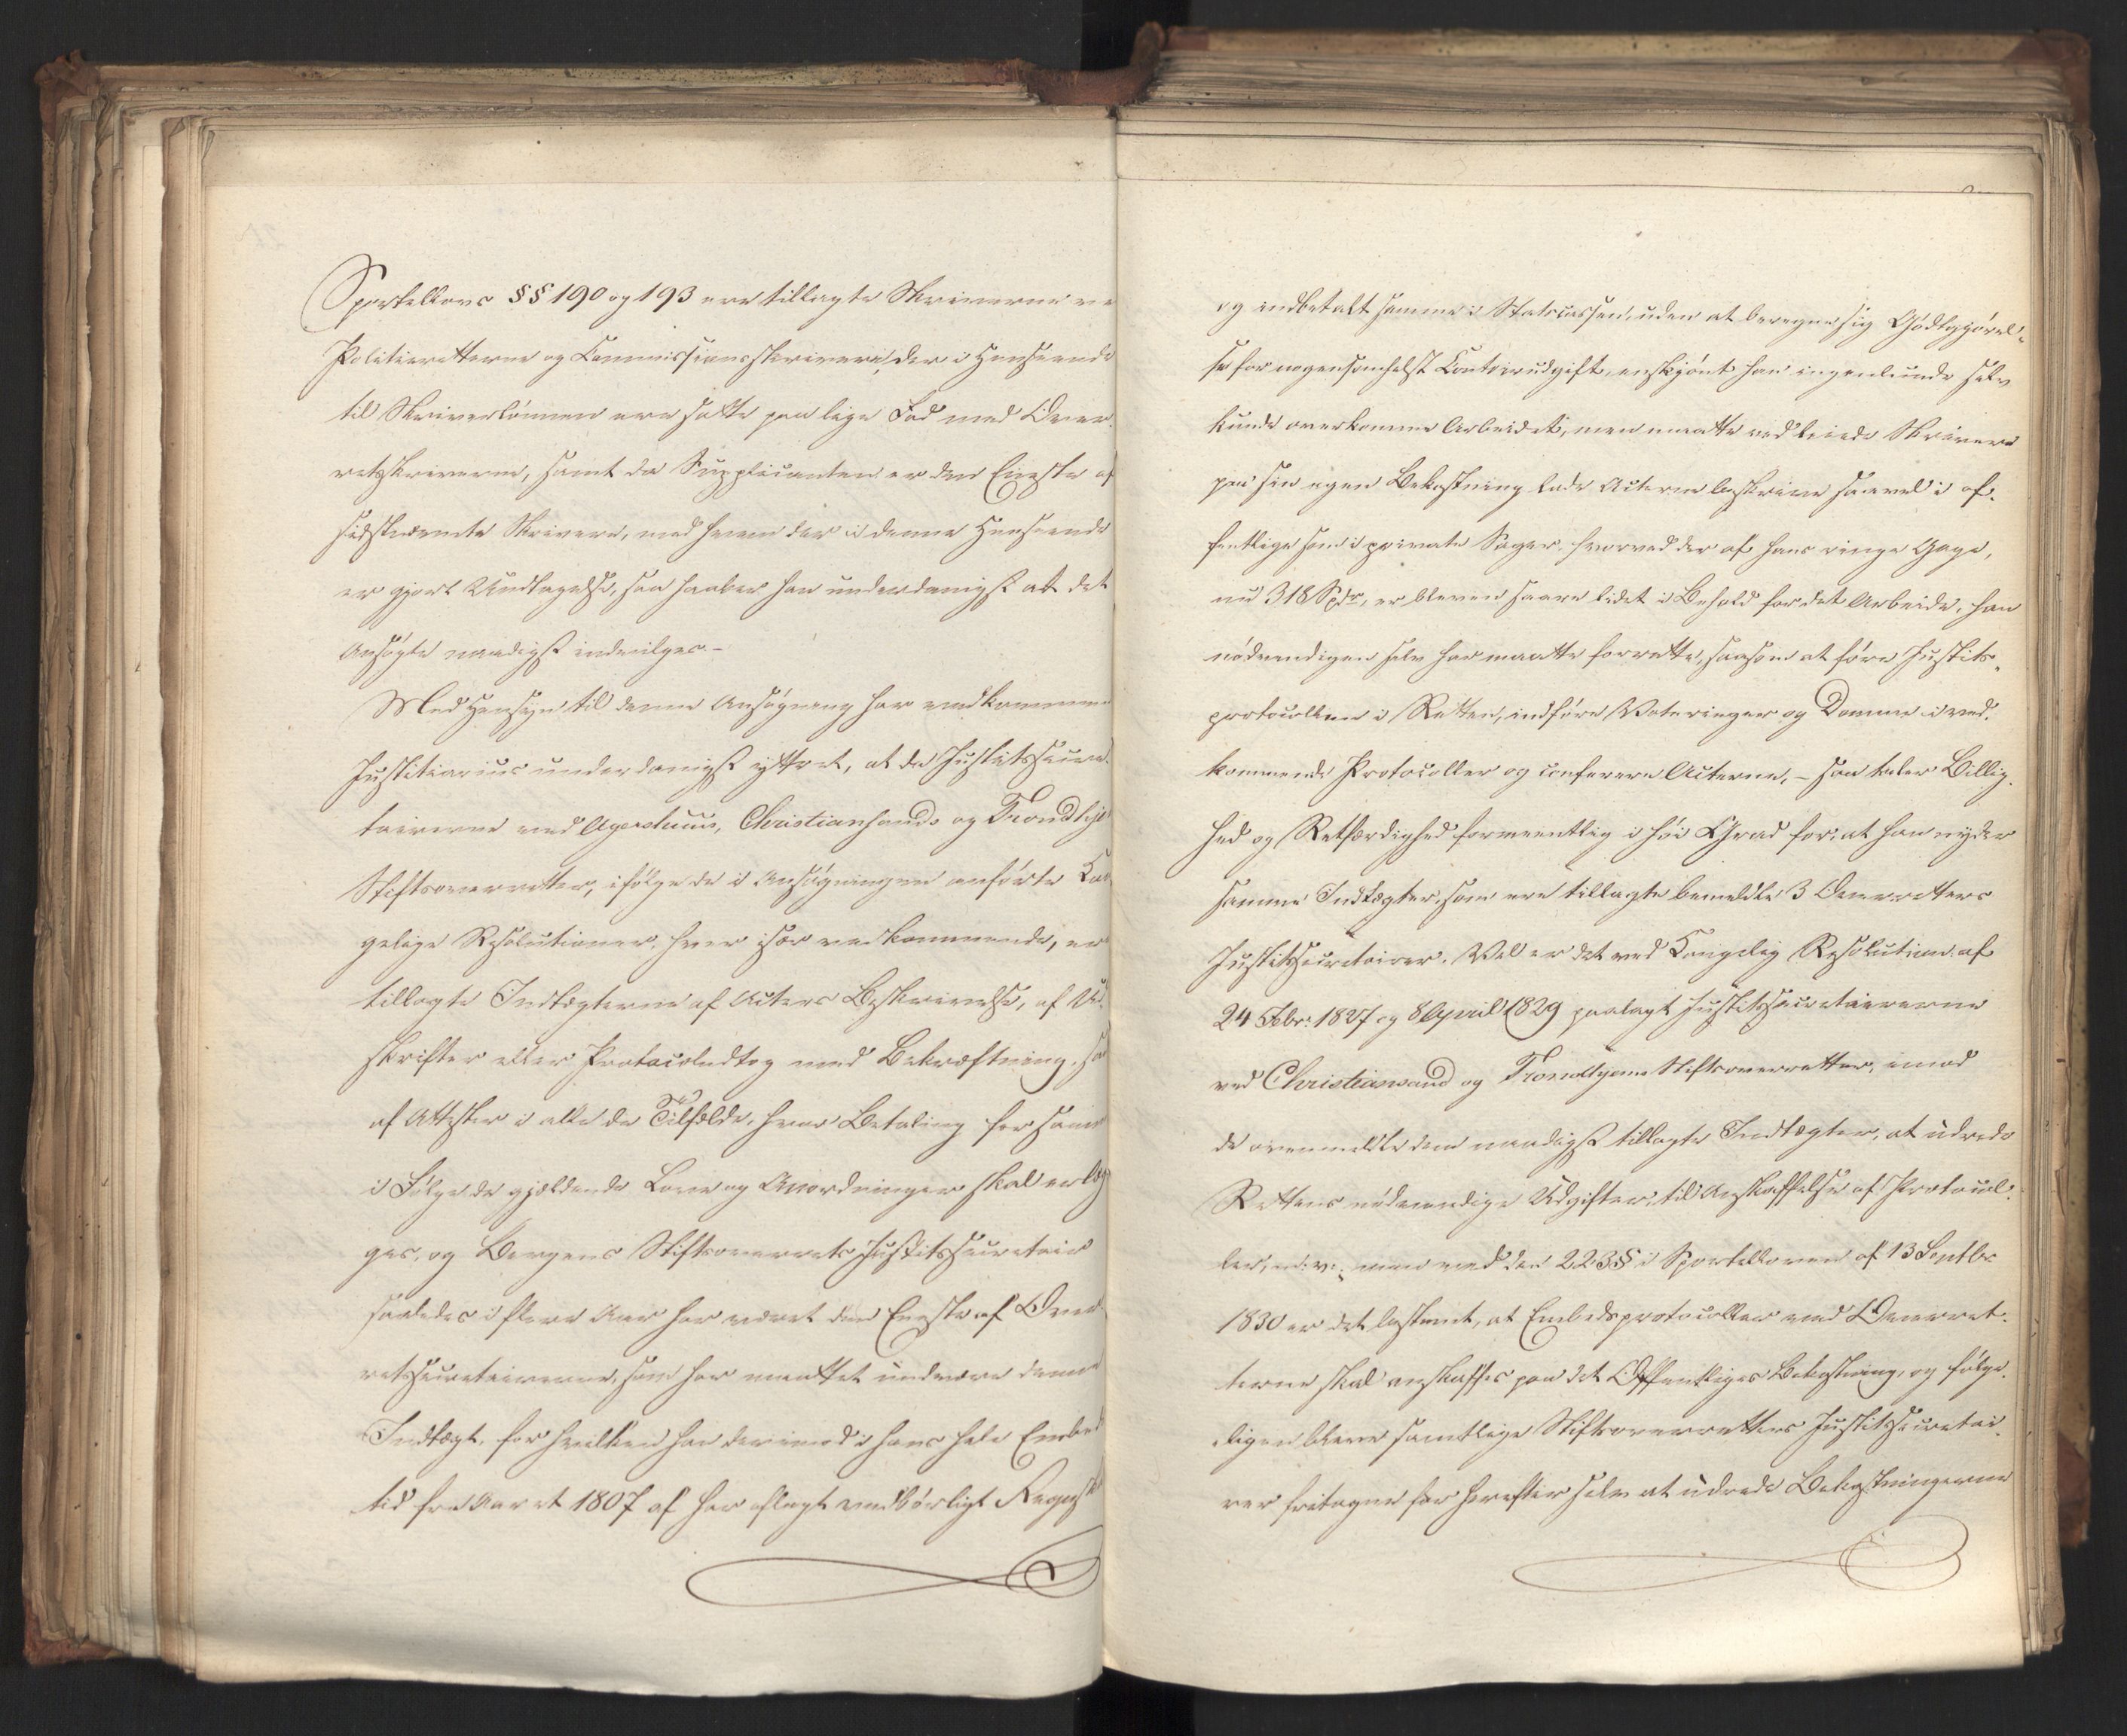 Sportellovs §§ 190 og 193 ere tillagte Skriverne ve
Politieretterne og Commissionsskrivere, der i Henseende
til Skriverlønnen ere satte paa lige Fod med Over-
retsskriverne, samt da Supplicanten er den Eneste af
sidstnævnte Skrivere, med hvem der i denne Henseende
er gjort Undtagelse, saa haaber han underdanigst at det
Ansøgte naadigst indvilges. -
Med Hensyn til denne Ansøgning har vedkommen
Justitiarius underdanigst yttret, at da Justitssecre-
tairerne ved Agershuus, Christiansands og Trondhje
Stiftsoverretter, ifølge de i Ansøgningen anførte Kon
gelige Resolutioner, hver især vedkommende, er
tillagte Indtægterne af Acters Beskrivelse, af Ud-
skrifter eller Protocoludtog med Bekræftning, sa
af Attester i alle de Tilfælde, hvor Betaling for sam
i Følge de gjældende Love og Anordninger skal erlæg
ges, og Bergens Stiftsoverrets Justitssecretair
saaledes i flere Aar har været den Eneste af Over
retssecretairerne, som har maattet undvære denne
Indtægt, for hvilken han derimod i hans hele Embeds
tid fra Aaret 1807 af har aflagt vedbørligt Regnsk
og indbetalt samme i Statscassen, uden at beregne sig Godtgjørel-
se for nogensomhelst Contoirudgift, enskjønt han ingenlunde selv
kunde overkomme Arbeidet, men maatte ved leiede Skrivere
paa sin egen Bekostning lade Acterne beskrive saavel i of-
fentlige som i private Sager, hvorved der af hans ringe Gage,
nu 318 Spdr, er bleven saare lidet i Behold for det Arbeide, han
nødvendigen selv har maatte forrette, saasom at føre Justits-
protocollen i Retten, indføre Voteringer og Domme i ved-
kommende Protocoller og conferere Acterne, - saa taler Billig-
hed og Retfærdighed formeentlig i høi Grad for, at han nyder
samme Indtægter, som ere tillagte bemeldte 3 Overretters
Justitssecretairer. Vel er det ved Kongelig Resolution af
24 Febr: 1827 og 8 April 1829 paalagt Justitssecretairerne
ved Christiansand og Trondhjems Stiftsoverretter, imod
de ovenmeldte dem naadigst tillagte Indtægter, at udrede
Rettens nødvendige Udgifter, til Anskaffelse af Protocol-
ler, m: v:, men ved den 223 § i Sportelloven af 13 Septbr
1830 er det bestemt, at Embedsprotocoller ved Overret-
terne skal anskaffes paa det Offentliges Bekostning, og følge-
ligen blive samtlige Stiftsoverretters Justitssecretai-
rer fritagne for herefter selv at udrede Bekostningerne